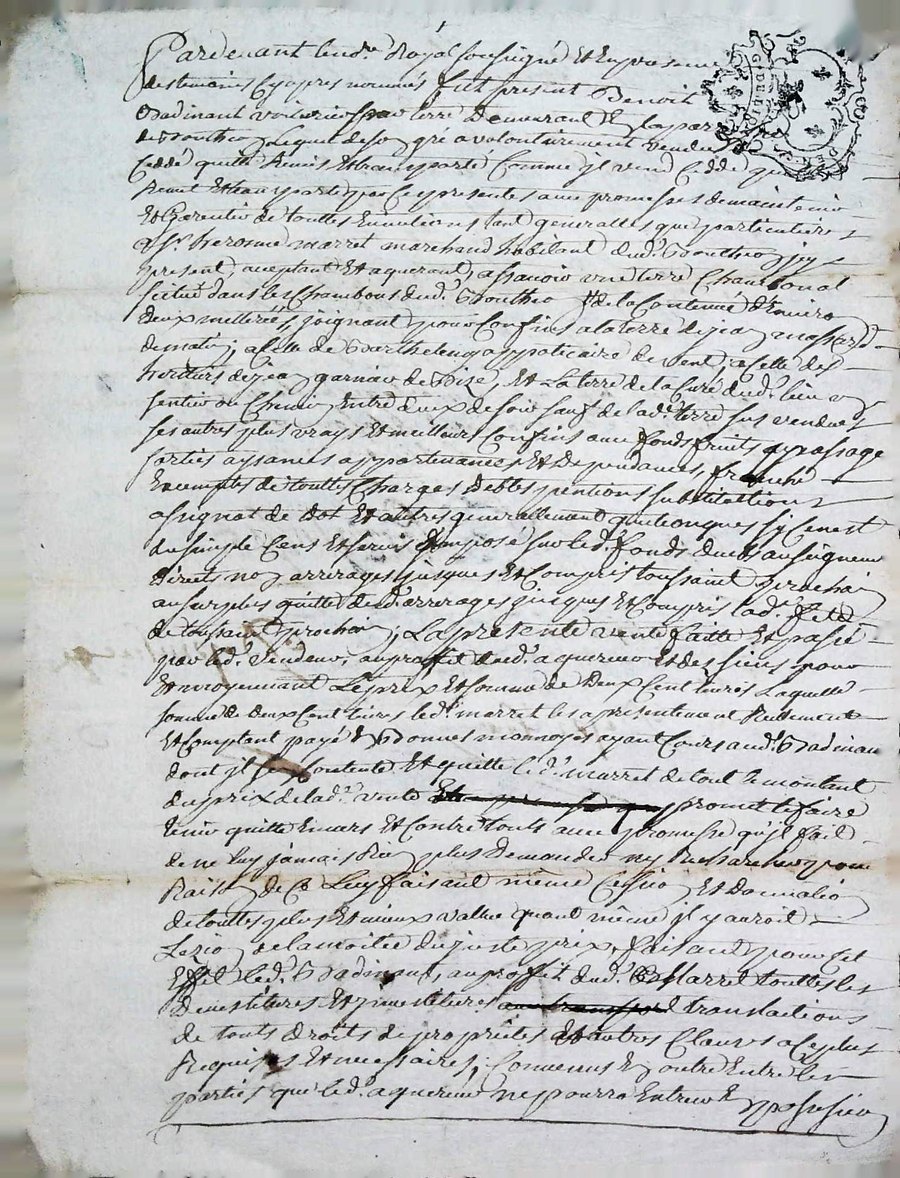 Pardevant le nore Royal soussigné Et En presence
des temoins Cy apres nommés fut present Benoit
Badinant voiturier par terre Demeurant En la par
de Boutheon Lequel de son gré a volontairement vendu
Ceddé quitté Remis Et transporté Comme jl vend Cedde qu
Remet Et transporte par Ces presentes avec promesses de maintenir
Et Garentir de touttes Evictions tant generalles que particulieres
a Sr. herosme marret marchand habitant dud. Boutheon jcy
present, aceptant Et aquerant, a sçavoir une terre Chambonal
scitué dans les Chambons dud. Boutheon de la Contenue d'Environ
deux metterées, joignant pour Confins a la terre de jean massard
de matin; a Celle de Barthelemy appoticaire de vent; a Celle des
heritiers de jean garnier de Bize, Et La terre de la Cure dud. lieu un
sentier ou Chemin Entre deux de soir sauf de lad. terre sus vendue
ses autres plus vrays Et meilleurs Confins avec fonds fruits passage
sorties aysances appartenances Et Dependances, franche
Exempte de touttes Charges debtes pentions substitutions
asignat de dot Et autres generallement quelconques sy Ce nest
du simple Cens Et servis jmposé sur led. fonds dueds au seigneur
directs non arrerages jusques Et Compris toussaint prochain
au surplus quitte desd. arrerages jusques Et Compris lad. fete
de toussaint prochain; La presente vente faitte Et passée
par led. vendeur, au proffit dud. aquereur Et des siens pour
Et moyennant Le prix Et somme de Deux Cent livres Laquelle
somme de deux Cent livres led. marret les a presentement Reelement
Et Comptant payé En Bonnes monnoyes ayant Cours aud. Badinan
dont jl se Contente Et quitte led. marret de tout Le montant
du prix de lad. vente promet le faire
tenir quitte Envers Et Contre touts avec promesse qu'jl fait
de ne luy jamais Rien plus Demander ny Rechercher pour
Raison de Ce Luy faisant même Cession Et Donnation
de touttes plus Et mieux vallue quant même jl y auroit
Lezion de la moitié du juste prix, faisant pour Cet
Effet led. Badinant, au proffit dud. Marret touttes les
Demestitures Et jnvestitures translactions
de touts droits de proprietés Et autres Clauses a Ce plus
Requises Et necessaires; Convenus En outre Entre les
parties que led. aquereur ne pourra Entrer En possession